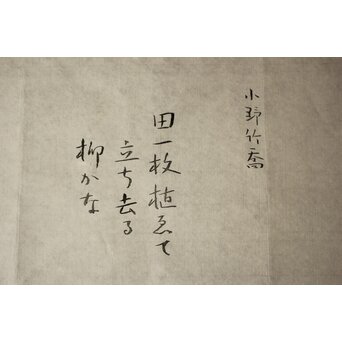 小野竹喬
田一枚植ゑて
立ち去る
柳かな